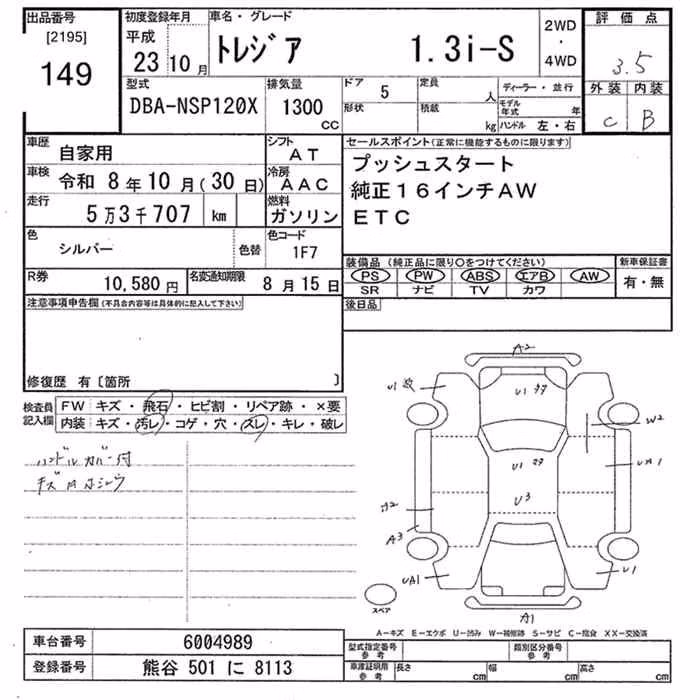 出品番号 初度登録年月 車名・グレード 2WD・4WD 評価点
[2195] 平成
149 23 10月 トレジア 1.3i-S 3.5
型式 排気量 ドア 5 定員 人 ディーラー・並行 外装 内装
DBA-NSP120X 1300 cc 形状 積載 kg モデル年式 年 C B
ハンドル 左・右
車歴 自家用 シフト AT セールスポイント(正常に機能するものに限ります)
車検 令和 8年10月(30日) 冷房 AAC プッシュスタート
純正16インチAW
走行 5万3千707 km 燃料 ガソリン ETC
色 シルバー 色替 色コード 1F7
装備品(純正品に限り○をつけてください) 新車保証書
R券 10,580円 名変通知期限 8月15日 PS PW ABS エアB AW 有・無
SR ナビ TV カワ
注意事項申告欄(不具合内容等は具体的に記入して下さい) 後日品
修復歴 有〔箇所 〕
検査員記入欄 FW キズ・飛石・ヒビ割・リペア跡・×要
内装 キズ・汚レ・コゲ・穴・スレ・キレ・破レ
ハンドルカバー付
A2
U1
W2
U1
U3
A2
A3
UA1
U1
A1
スペア
A―キズ E―エクボ U―凹み W―補修跡 S―サビ C―腐食 XX―交換済
車台番号 6004989 型式指定番号 参考 類別区分番号 参考
登録番号 熊谷 501 に 8113 車庫証明用 参考 長さ cm 幅 cm 高さ cm